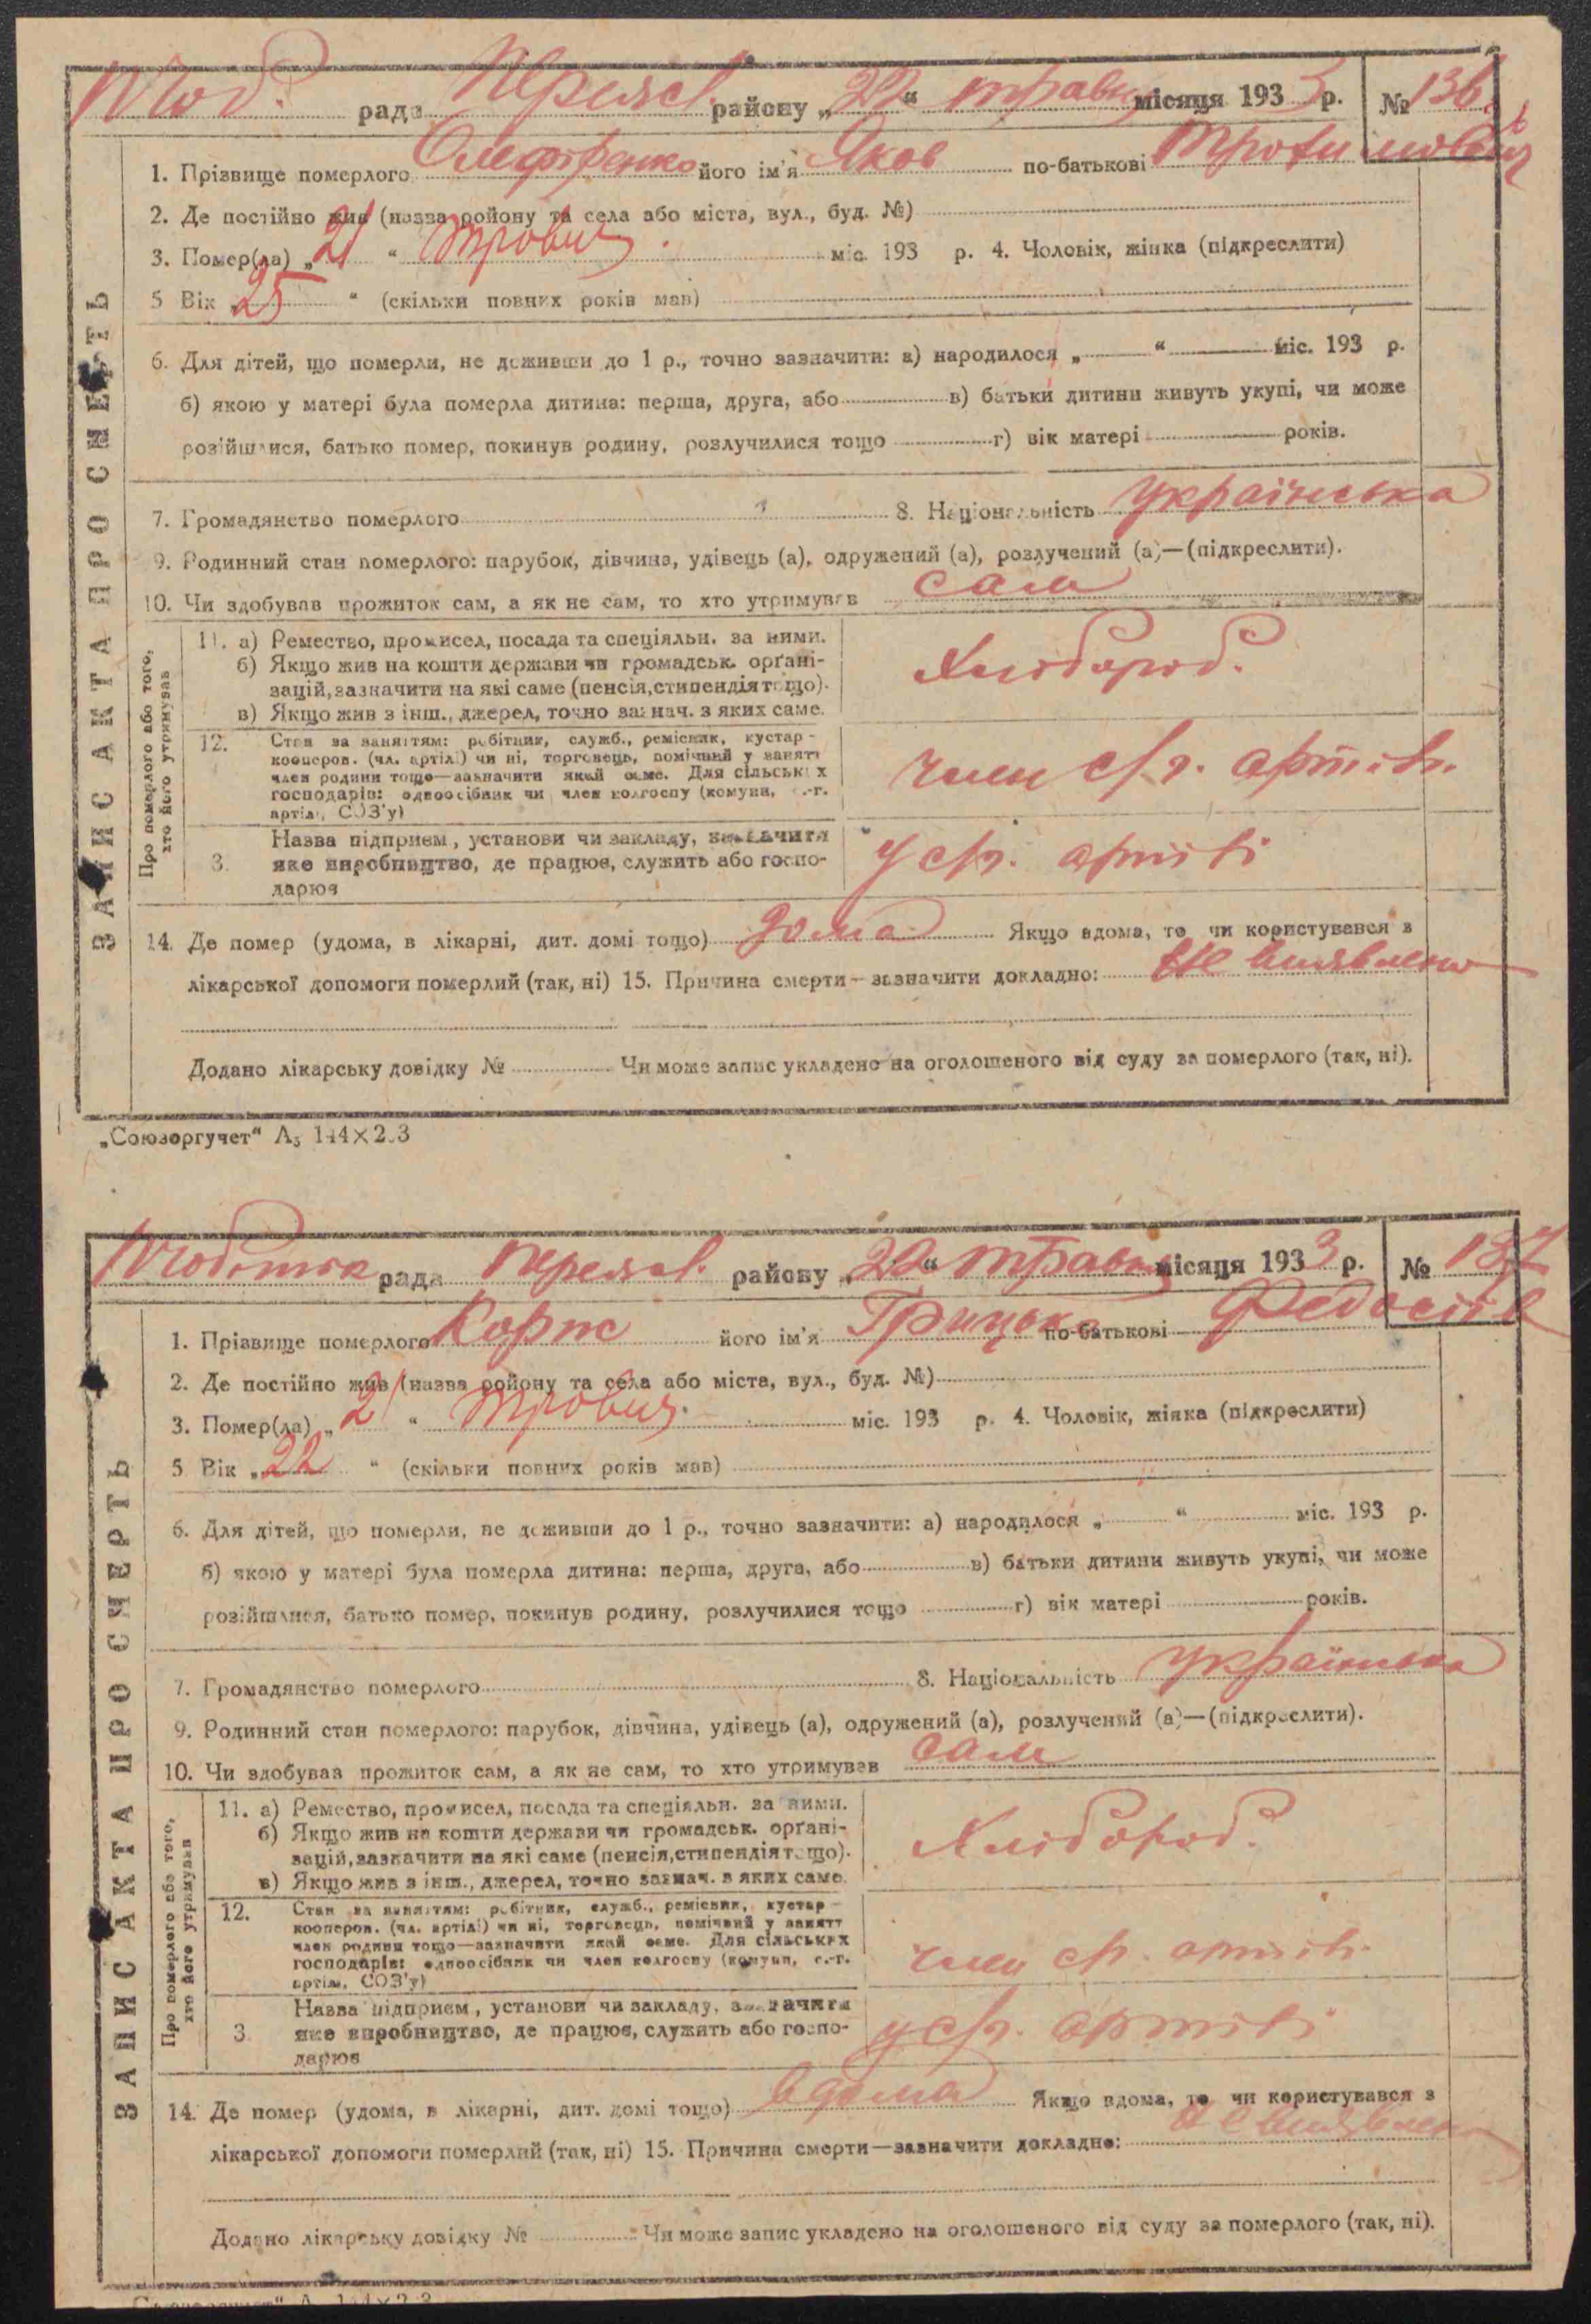 рада Переясл. району „22“ травня місяця 1933 р. № 136
1. Прізвище померлого його ім'я Яков по-батькові Трофимович
2. Де постійно жив (назва ройону та села або міста, вул., буд. №)
3. Помер(ла) „21“ травня. міс. 193 р. 4. Чоловік, жінка (підкреслити)
5 Вік „25“ (скільки повних років мав)
6. Для дітей, що померли, не доживши до 1 р., точно зазначити: а) народилося „ “ міс. 193 р.
б) якою у матері була померла дитина: перша, друга, або в) батьки дитини живуть укупі, чи може
розійшлися, батько помер, покинув родину, розлучилися тощо г) вік матері років.
7. Громадянство померлого 8. Національність українська
9. Родинний стан померлого: парубок, дівчина, удівець (а), одружений (а), розлучений (а)—(підкреслити).
10. Чи здобував прожиток сам, а як не сам, то хто утримував сам
ЗАПИС АКТА ПРО СМЕРТЬ
Про померлого або того,
хто його утримував
11. а) Ремество, промисел, посада та спеціяльн. за ними.
б) Якщо жив на кошти держави чи громадськ. орґані-
зацій, зазначити на які саме (пенсія, стипендія тощо).
в) Якщо жив з інш., джерел, точно зазнач. з яких саме.
Хлібороб.
12. Стан за заняттям: робітник, служб., ремісник, кустар -
кооперов. (чл. артілі) чи ні, торговець, помічний у занятт
член родини тощо—зазначити який саме. Для сільських
господарів: одноосібник чи член колгоспу (комуни, с.-г.
артілі, СОЗ'у)
член с/г. артілі.
3. Назва підприєм, установи чи закладу, зазначити
яке виробництво, де працює, служить або госпо-
дарює
у с/г. артілі
14. Де помер (удома, в лікарні, дит. домі тощо) дома Якщо вдома, то чи користувався з
лікарської допомоги померлий (так, ні) 15. Причина смерти—зазначити докладно: не виявлено
Додано лікарську довідку № Чи може запис укладено на оголошеного від суду за померлого (так, ні).
„Союзоргучет“ А₅ 144×2.3
рада Переясл. району „22“ травня місяця 1933 р. № 137
1. Прізвище померлого Корж його ім'я Грицько по-батькові
2. Де постійно жив (назва ройону та села або міста, вул., буд. №)
3. Помер(ла) „21“ травня. міс. 193 р. 4. Чоловік, жінка (підкреслити)
5 Вік „22“ (скільки повних років мав)
6. Для дітей, що померли, не доживши до 1 р., точно зазначити: а) народилося „ “ міс. 193 р.
б) якою у матері була померла дитина: перша, друга, або в) батьки дитини живуть укупі, чи може
розійшлися, батько помер, покинув родину, розлучилися тощо г) вік матері років.
7. Громадянство померлого 8. Національність українська
9. Родинний стан померлого: парубок, дівчина, удівець (а), одружений (а), розлучений (а)—(підкреслити).
10. Чи здобував прожиток сам, а як не сам, то хто утримував сам
ЗАПИС АКТА ПРО СМЕРТЬ
Про померлого або того,
хто його утримував
11. а) Ремество, промисел, посада та спеціяльн. за ними.
б) Якщо жив на кошти держави чи громадськ. орґані-
зацій, зазначити на які саме (пенсія, стипендія тощо).
в) Якщо жив з інш., джерел, точно зазнач. з яких саме.
Хлібороб.
12. Стан за заняттям: робітник, служб., ремісник, кустар -
кооперов. (чл. артілі) чи ні, торговець, помічний у занятт
член родини тощо—зазначити який саме. Для сільських
господарів: одноосібник чи член колгоспу (комуни, с.-г.
артілі, СОЗ'у)
член с/г. артілі.
3. Назва підприєм, установи чи закладу, зазначити
яке виробництво, де працює, служить або госпо-
дарює
у с/г. артілі
14. Де помер (удома, в лікарні, дит. домі тощо) вдома Якщо вдома, то чи користувався з
лікарської допомоги померлий (так, ні) 15. Причина смерти—зазначити докладно: не виявлено
Додано лікарську довідку № Чи може запис укладено на оголошеного від суду за померлого (так, ні).